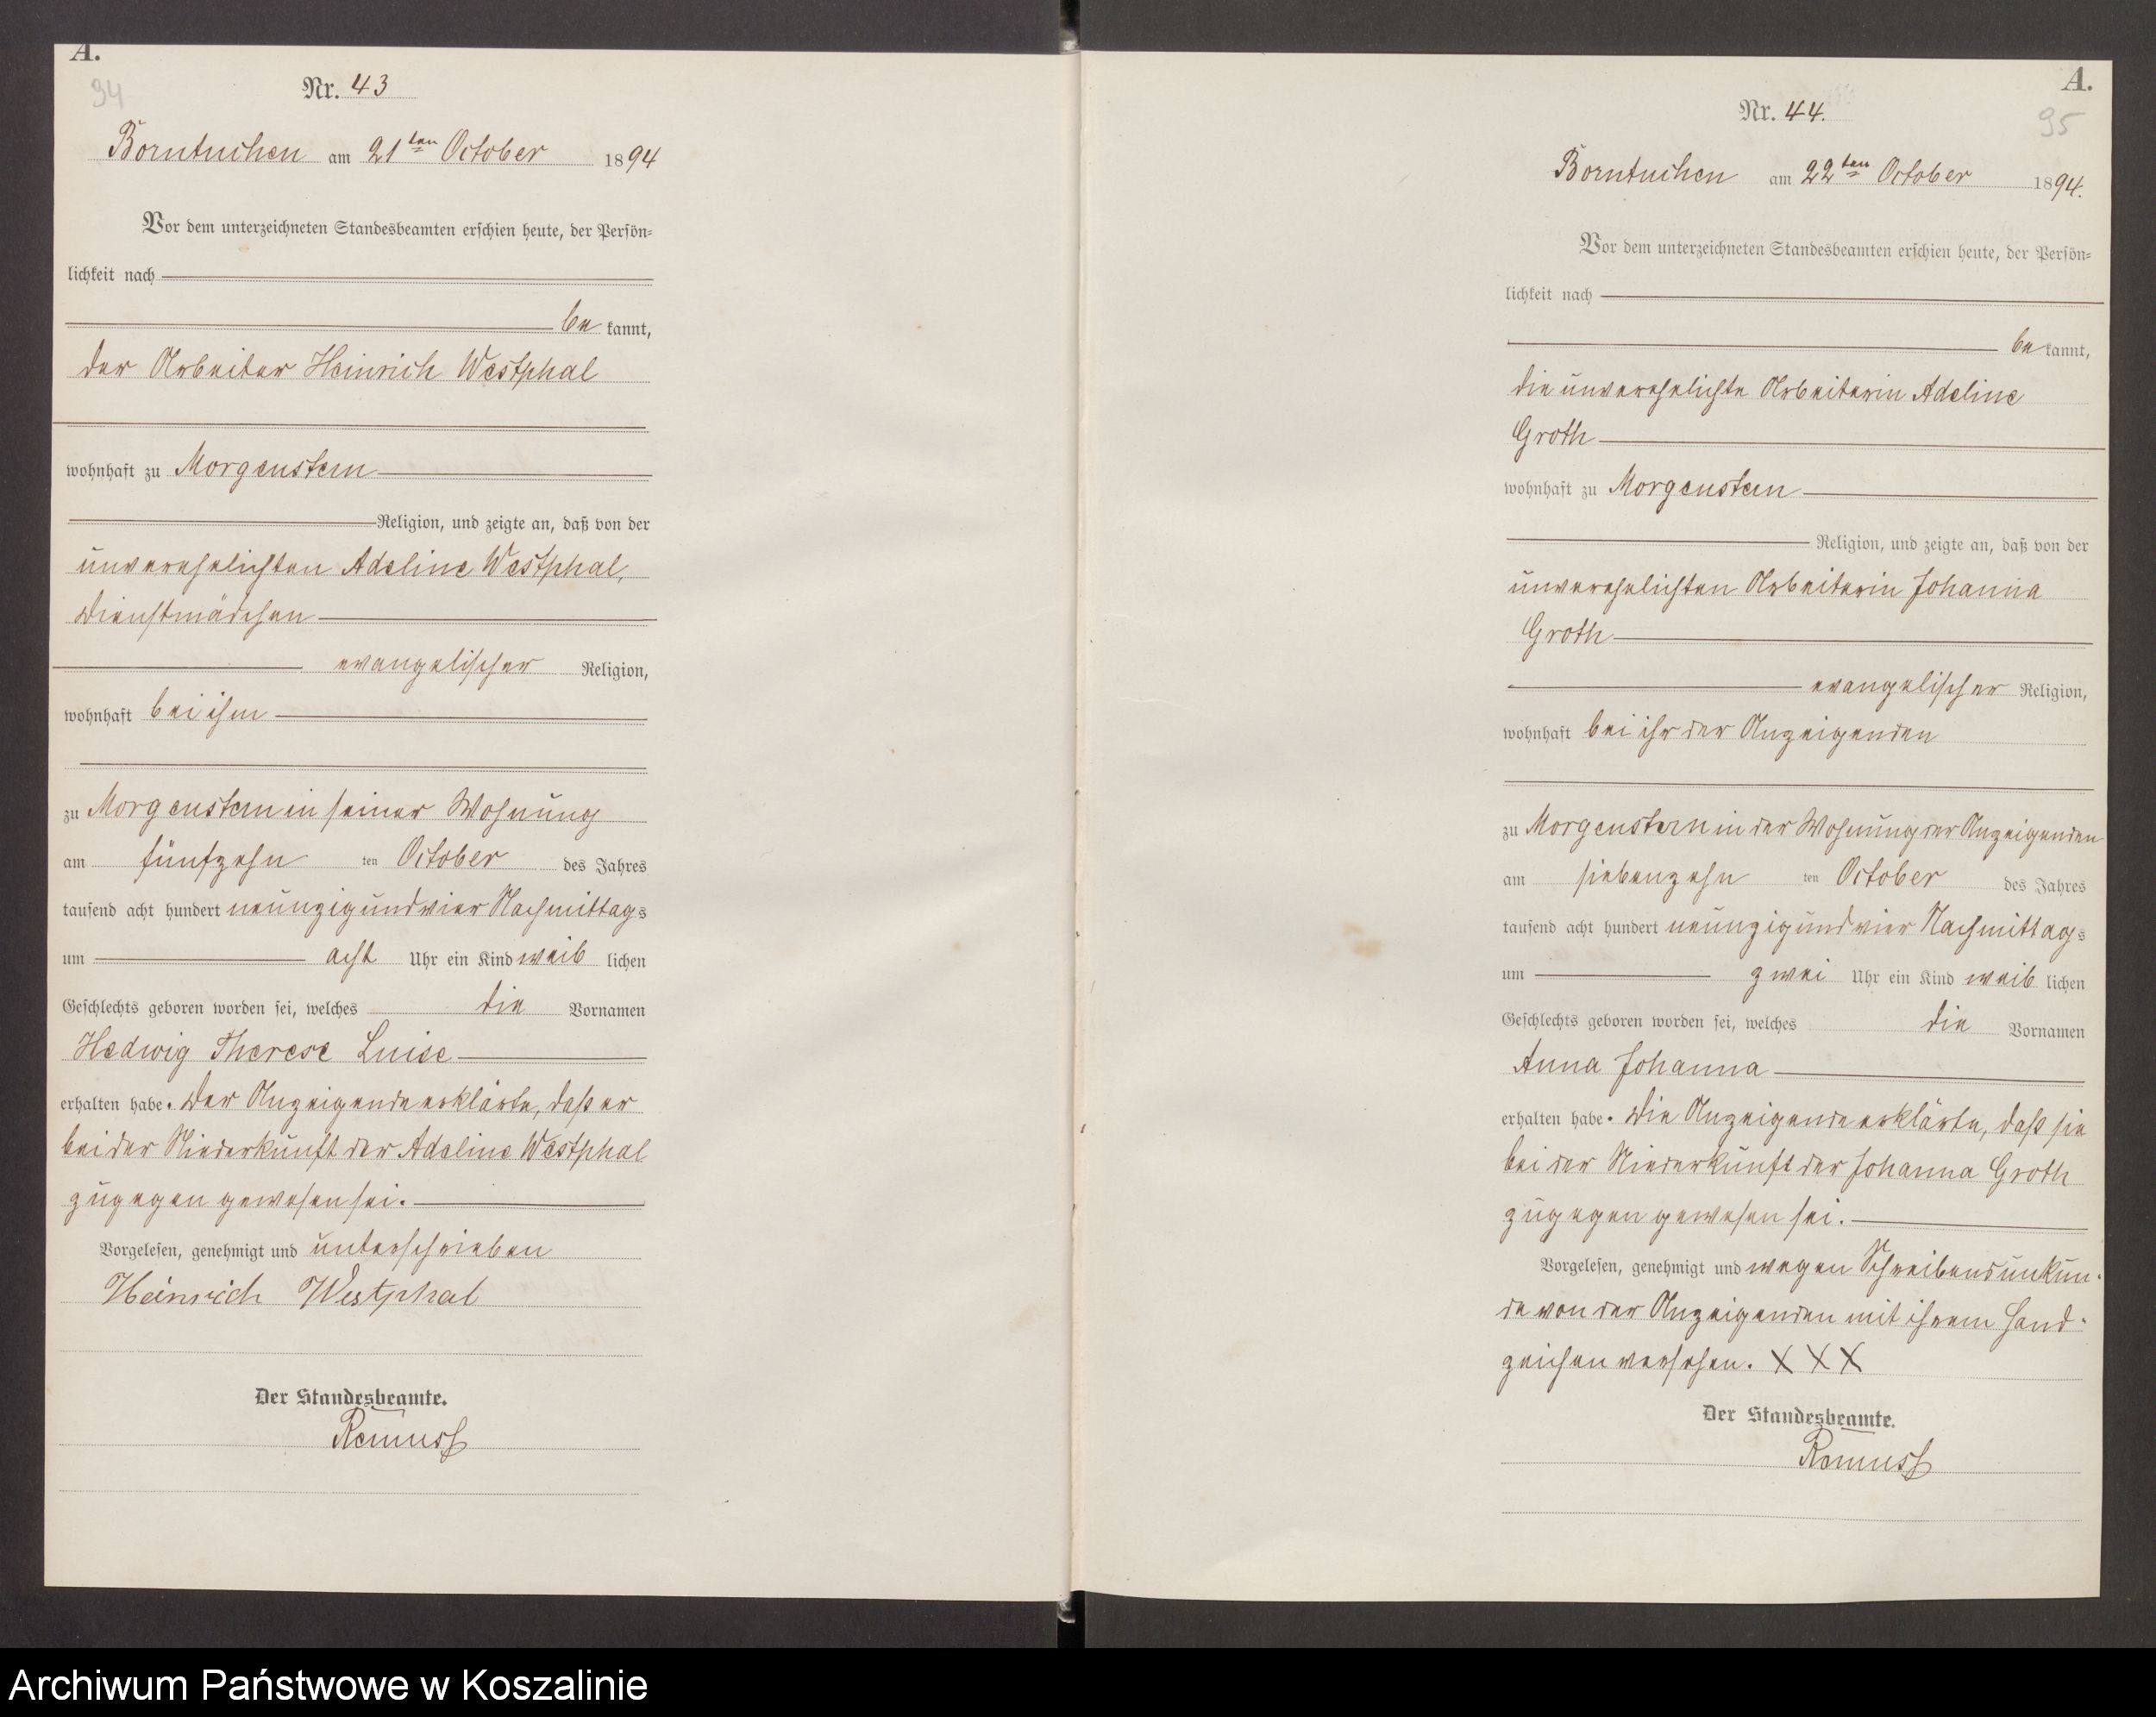 A.
94
Nr. 43
Borntuchen am 21ten October 1894
Vor dem unterzeichneten Standesbeamten erschien heute, der Persön=
lichkeit nach
be kannt,
der Arbeiter Heinrich Westphal
wohnhaft zu Morgenstern
Religion, und zeigte an, daß von der
unverehelichten Adeline Westphal,
Dienstmädchen
evangelischer Religion,
wohnhaft bei ihm
zu Morgenstern in seiner Wohnung
am fünfzehn ten October des Jahres
tausend acht hundert neunzig und vier Nachmittags
um acht Uhr ein Kind weib lichen
Geschlechts geboren worden sei, welches die Vornamen
Hedwig Therese Luise
erhalten habe. Der Anzeigende erklärte, daß er
bei der Niederkunft der Adeline Westphal
zugegen gewesen sei.
Vorgelesen, genehmigt und unterschrieben
Heinrich Westphal
Der Standesbeamte.
Remuss
A.
95
Nr. 44.
Borntuchen am 22ten October 1894.
Vor dem unterzeichneten Standesbeamten erschien heute, der Persön=
lichkeit nach
be kannt,
die unverehelichte Arbeiterin Adeline
Groth
wohnhaft zu Morgenstern
Religion, und zeigte an, daß von der
unverehelichten Arbeiterin Johanna
Groth
evangelischer Religion,
wohnhaft bei ihr der Anzeigenden
zu Morgenstern in der Wohnung der Anzeigenden
am siebenzehn ten October des Jahres
tausend acht hundert neunzig und vier Nachmittags
um zwei Uhr ein Kind weib lichen
Geschlechts geboren worden sei, welches die Vornamen
Anna Johanna
erhalten habe. Die Anzeigende erklärte, daß sie
bei der Niederkunft der Johanna Groth
zugegen gewesen sei.
Vorgelesen, genehmigt und wegen Schreibensunkun-
de von der Anzeigenden mit ihrem Hand-
zeichen versehen. XXX
Der Standesbeamte.
Remuss
Archiwum Państwowe w Koszalinie